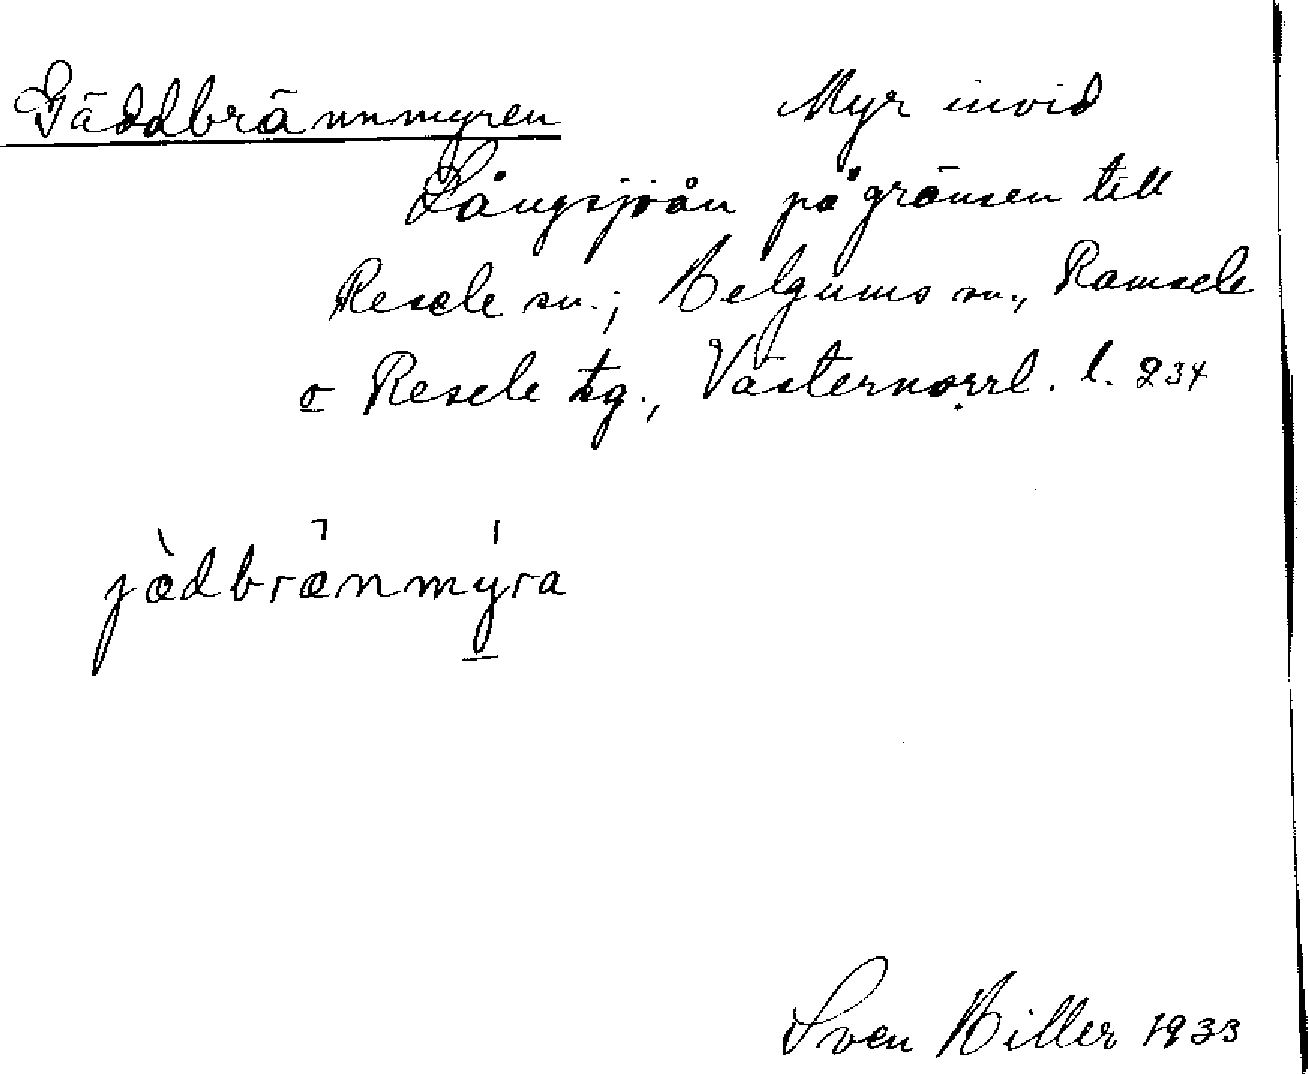 Gäddbrännmyren Myr invid
Långsjöån på gränsen till
Resele sn.; Helgums sn., Ramsele
o Resele tg., Västernorrl. l. 234
jàdbränmýra
Sven Hiller 1933